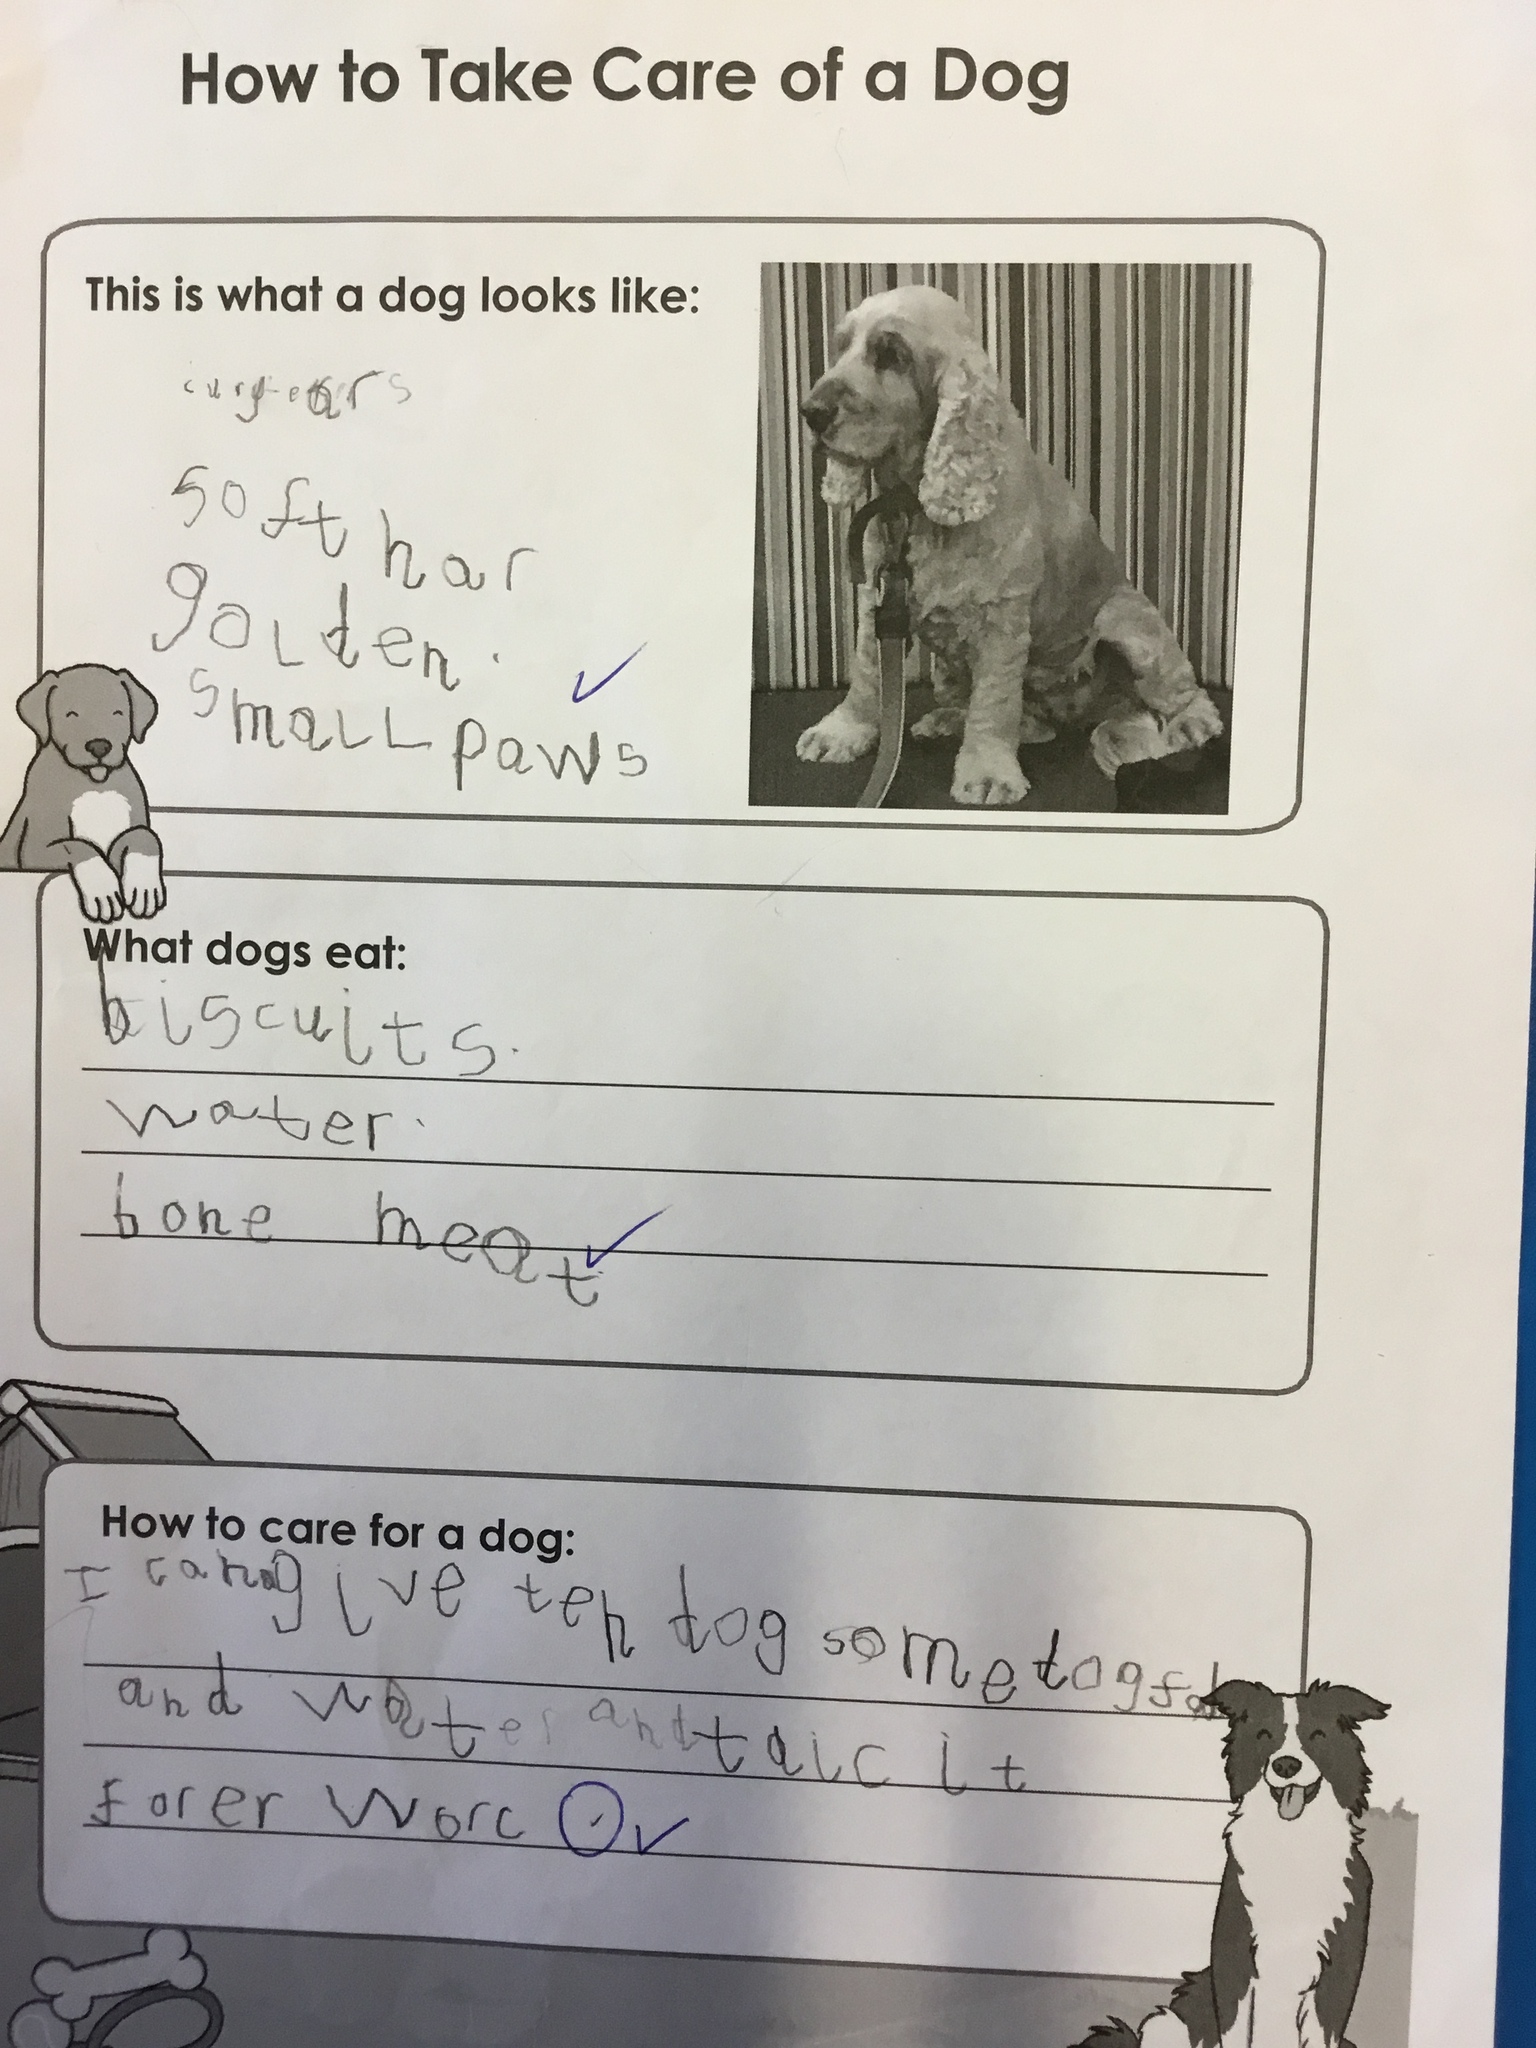 How to Take Care of a Dog
This is what a dog looks like:
ears
soft har
golden.
small paws
What dogs eat:
biscuits.
water.
bone meat
How to care for a dog:
I can give teh dog some dog
and water and taic it
forer worc